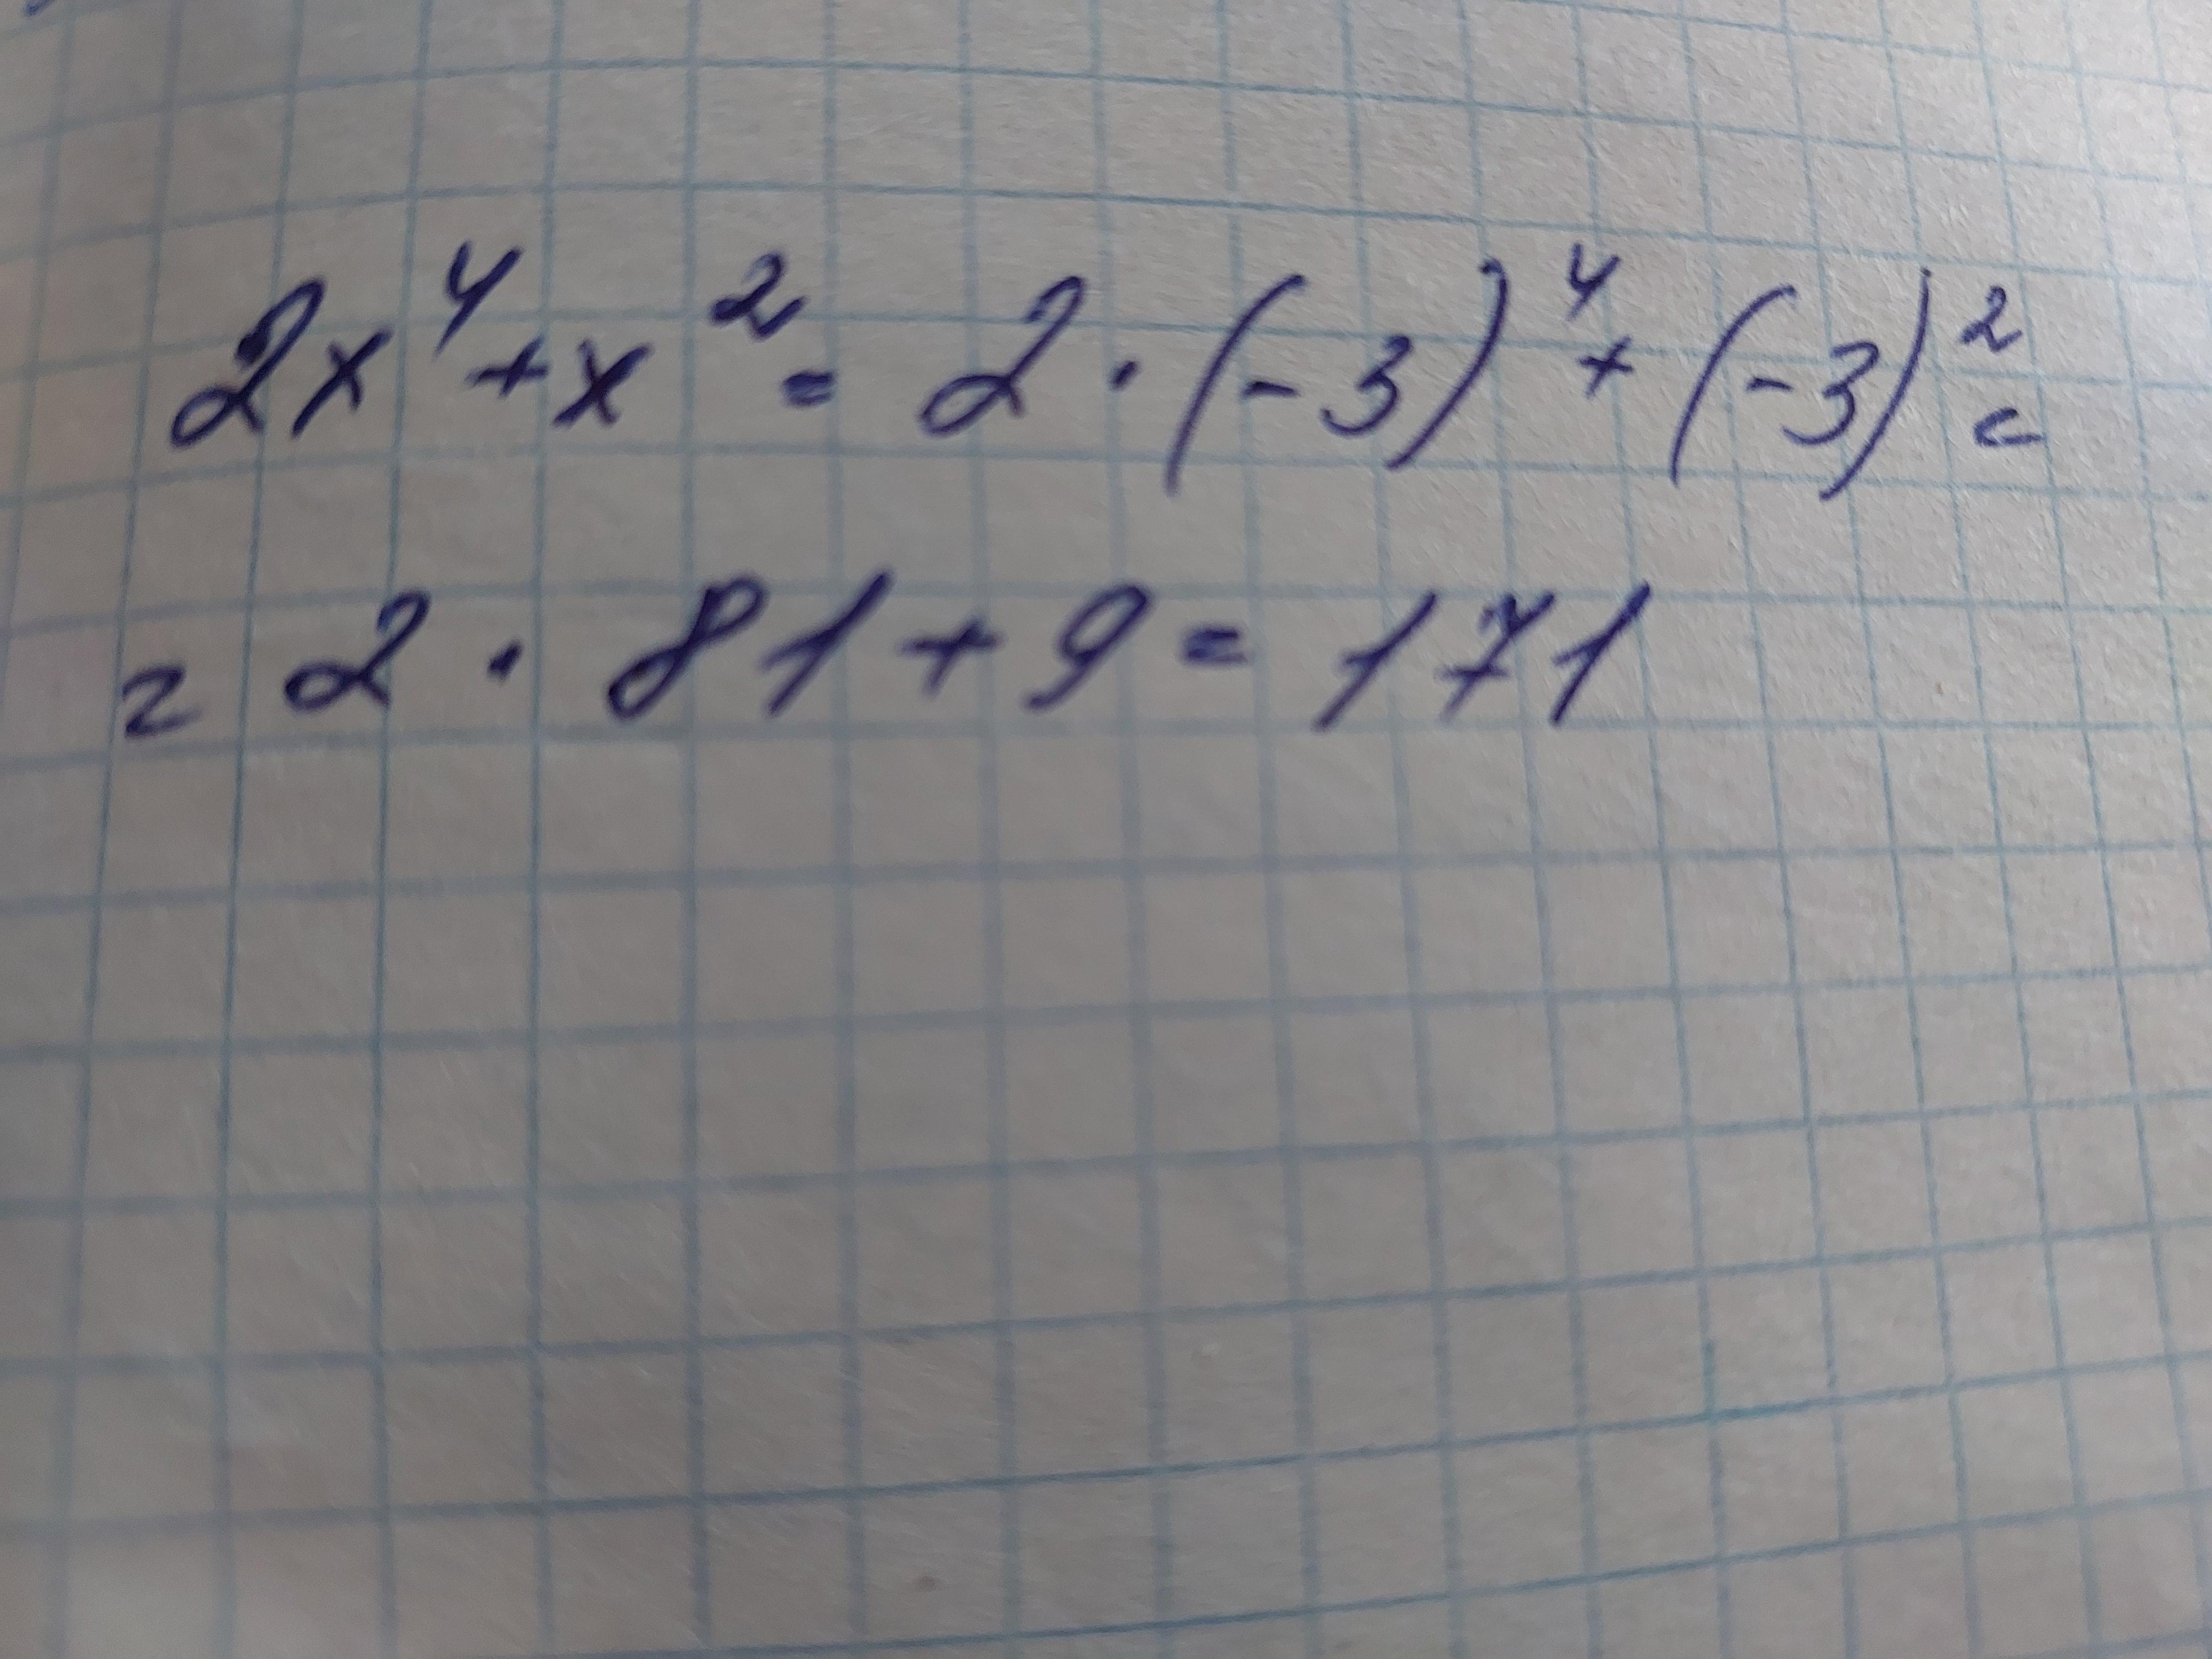 2x⁴+x² = 2 · (-3)⁴ + (-3)² =
= 2 · 81 + 9 = 171